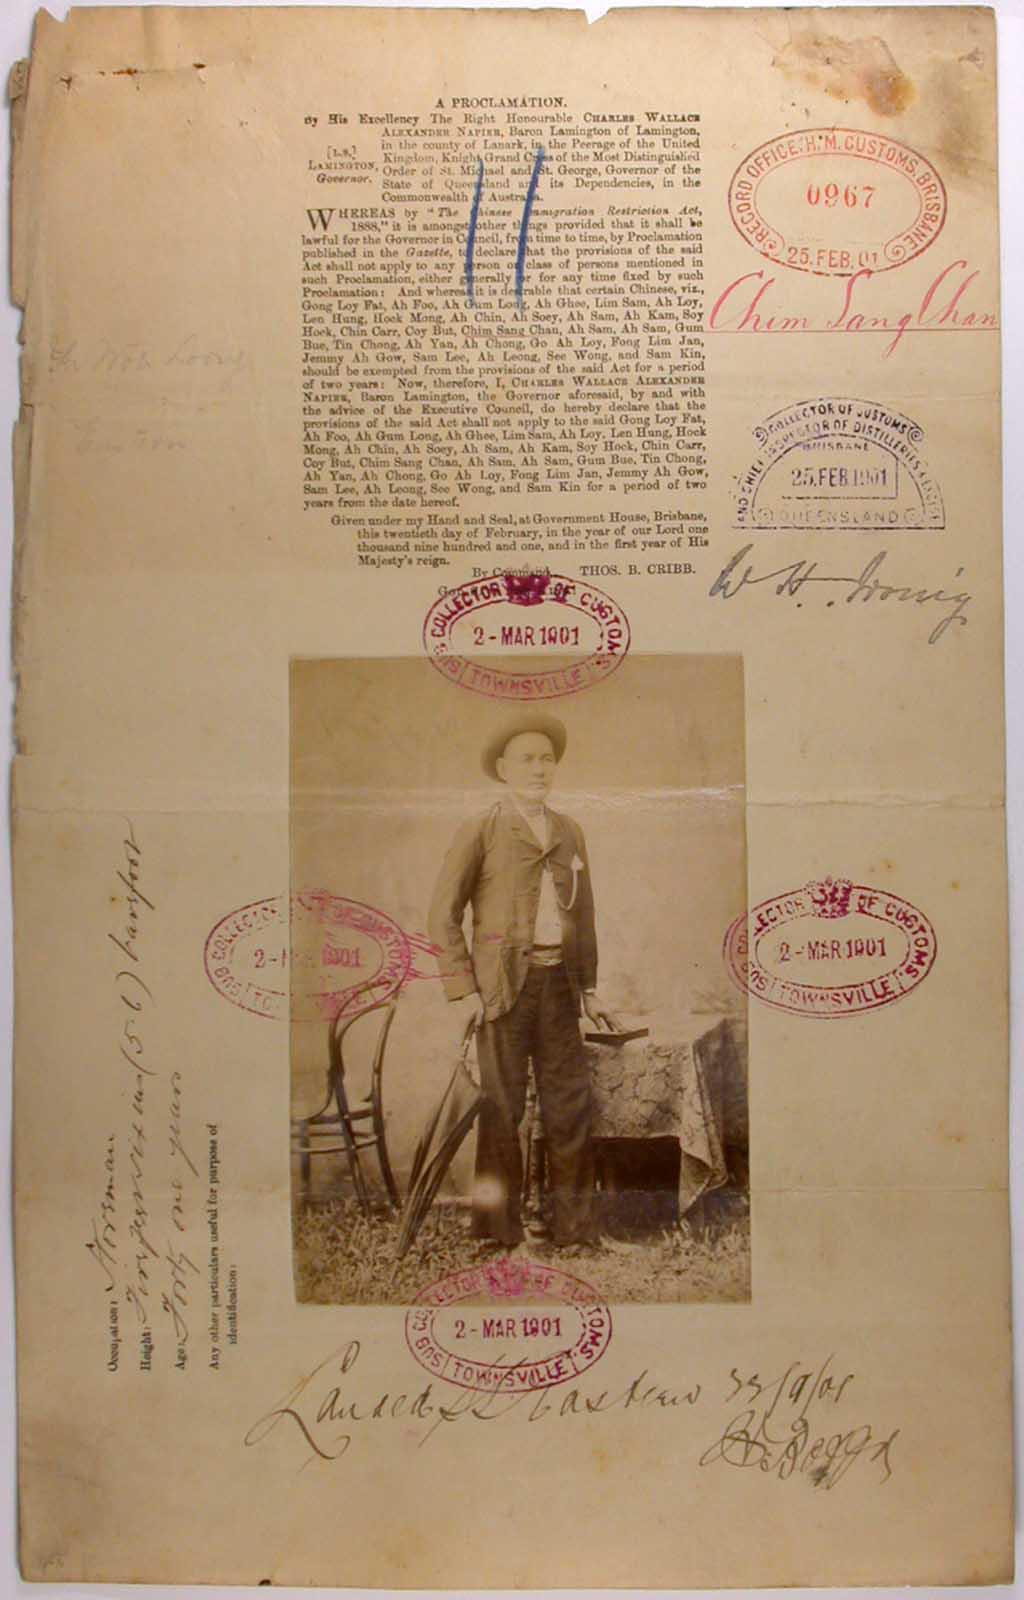 A PROCLAMATION.
By His Excellency The Right Honourable CHARLES WALLACE
ALEXANDER NAPIER, Baron Lamington of Lamington,
in the county of Lanark, in the Peerage of the United
[L.S.] Kingdom, Knight Grand Cross of the Most Distinguished
LAMINGTON, Order of St. Michael and St. George, Governor of the
Governor. State of Queensland and its Dependencies, in the
Commonwealth of Australia.
WHEREAS by "The Chinese Immigration Restriction Act,
1888," it is amongst other things provided that it shall be
lawful for the Governor in Council, from time to time, by Proclamation
published in the Gazette, to declare that the provisions of the said
Act shall not apply to any person or class of persons mentioned in
such Proclamation, either generally or for any time fixed by such
Proclamation: And whereas it is desirable that certain Chinese, viz.,
Gong Loy Fat, Ah Foo, Ah Gum Long, Ah Ghee, Lim Sam, Ah Loy,
Len Hung, Hock Mong, Ah Chin, Ah Soey, Ah Sam, Ah Kam, Soy
Hock, Chin Carr, Coy But, Chim Sang Chan, Ah Sam, Ah Sam, Gum
Bue, Tin Chong, Ah Yan, Ah Chong, Go Ah Loy, Fong Lim Jan,
Jemmy Ah Gow, Sam Lee, Ah Leong, See Wong, and Sam Kin,
should be exempted from the provisions of the said Act for a period
of two years: Now, therefore, I, CHARLES WALLACE ALEXANDER
NAPIER, Baron Lamington, the Governor aforesaid, by and with
the advice of the Executive Council, do hereby declare that the
provisions of the said Act shall not apply to the said Gong Loy Fat,
Ah Foo, Ah Gum Long, Ah Ghee, Lim Sam, Ah Loy, Len Hung, Hock
Mong, Ah Chin, Ah Soey, Ah Sam, Ah Kam, Soy Hock, Chin Carr,
Coy But, Chim Sang Chan, Ah Sam, Ah Sam, Gum Bue, Tin Chong,
Ah Yan, Ah Chong, Go Ah Loy, Fong Lim Jan, Jemmy Ah Gow,
Sam Lee, Ah Leong, See Wong, and Sam Kin for a period of two
years from the date hereof.
Given under my Hand and Seal, at Government House, Brisbane,
this twentieth day of February, in the year of our Lord one
thousand nine hundred and one, and in the first year of His
Majesty's reign.
By Command, THOS. B. CRIBB.
RECORD OFFICE, H. M. CUSTOMS, BRISBANE
0967
25. FEB. 01
Chim Sang Chan
COLLECTOR OF CUSTOMS
AND CHIEF INSPECTOR OF DISTILLERIES
BRISBANE
25. FEB 1901
QUEENSLAND
W H.
COLLECTOR OF CUSTOMS
2 - MAR 1901
TOWNSVILLE
COLLECTOR OF CUSTOMS
2 - MAR 1901
TOWNSVILLE
COLLECTOR OF CUSTOMS.
2 - MAR 1901
TOWNSVILLE
COLLECTOR OF CUSTOMS
2 - MAR 1901
TOWNSVILLE
Occupation: Storeman
Height: (5.6) barefoot
Age: Forty one years
Any other particulars useful for purpose of
identification:
Landed Eastern